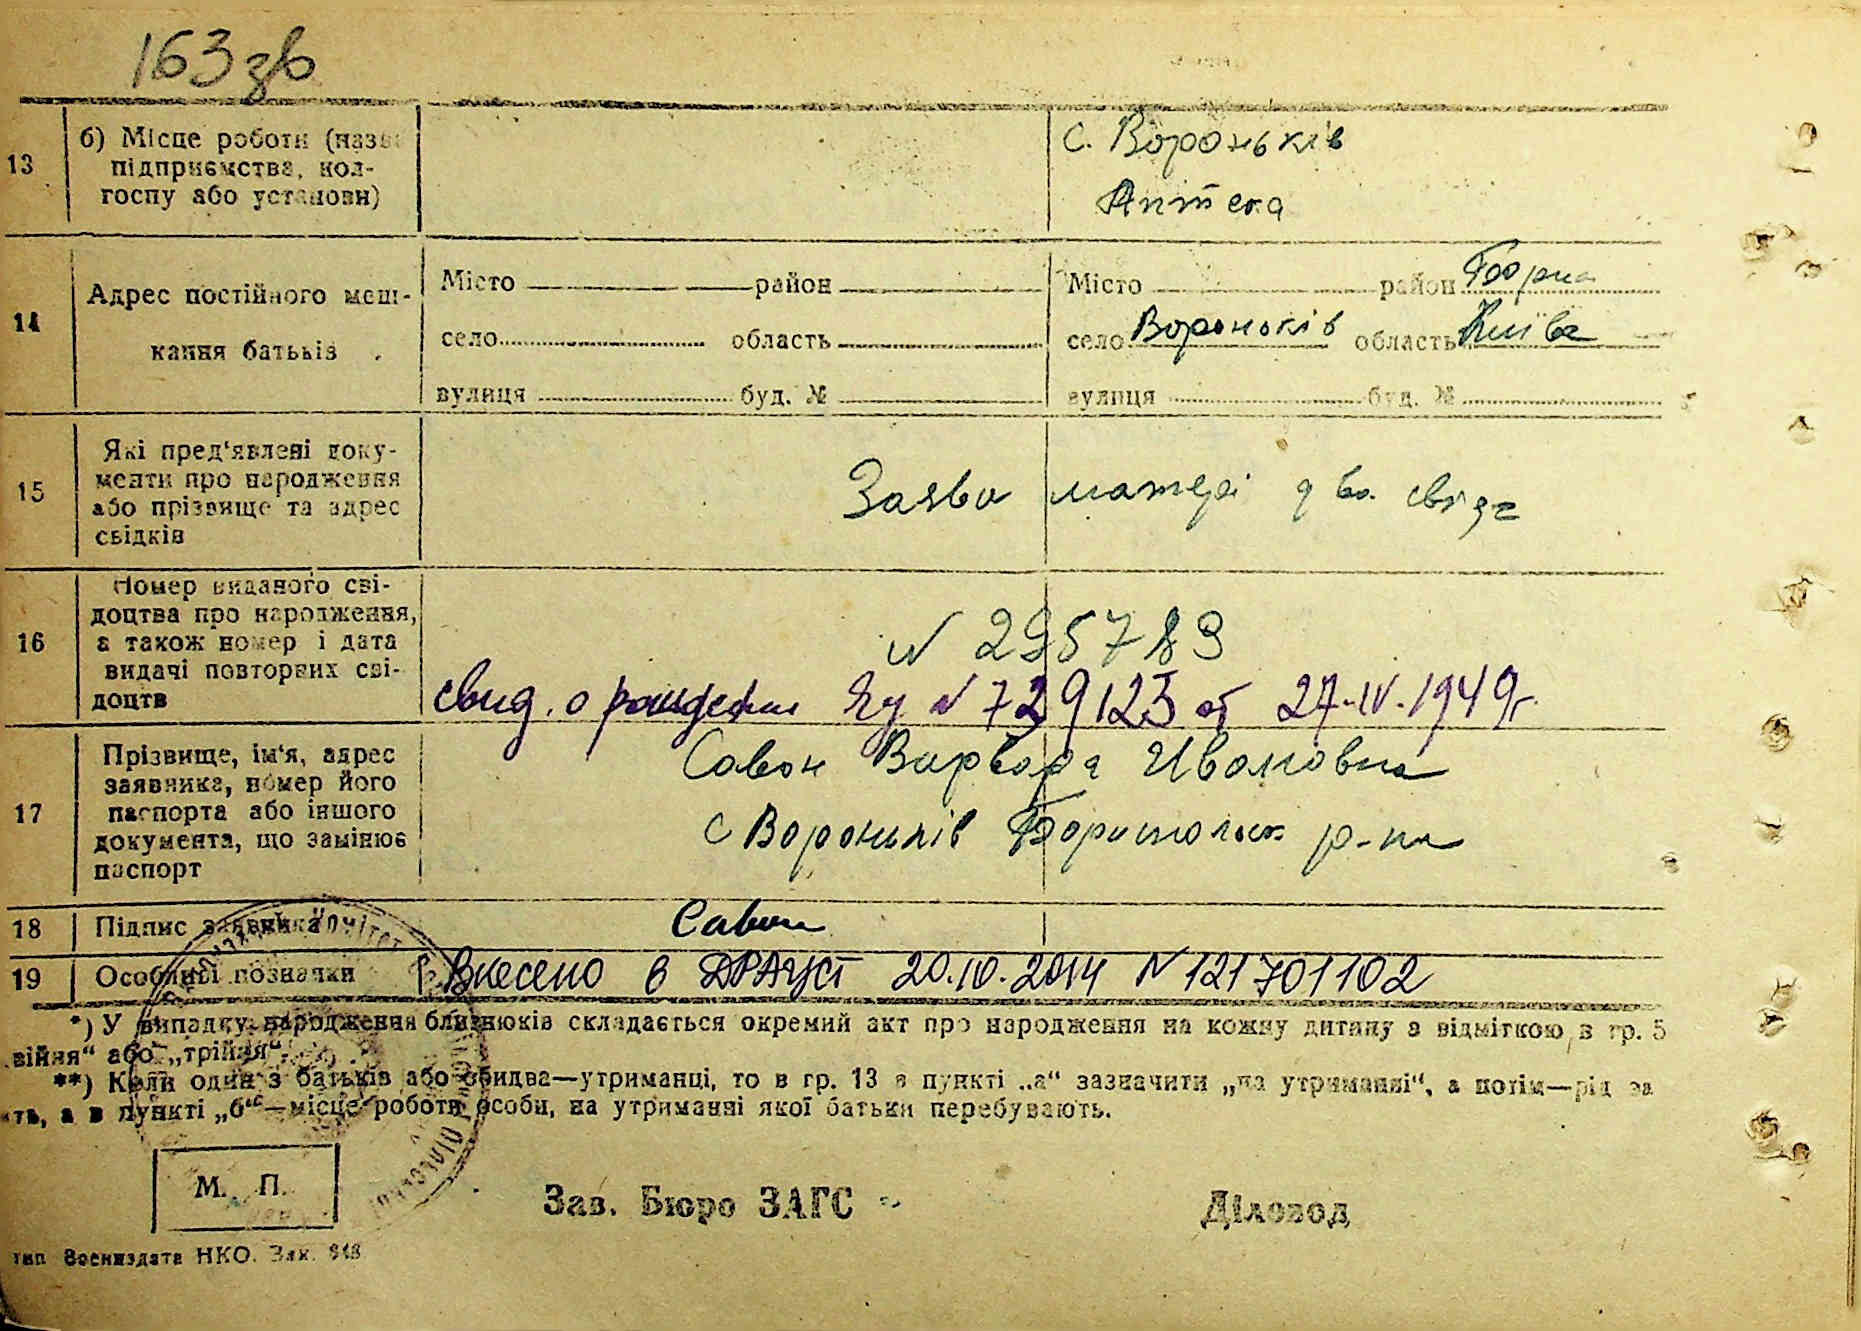 163 зв
13 б) Місце роботи (назва
підприємства, кол-
госпу або установи)
с. Вороньків
Аптека
14 Адрес постійного меш-
кання батьків
Місто район
село область
вулиця буд. №
Місто район Бориc
село Вороньків область Київа
вулиця буд. №
15 Які пред'явлені доку-
менти про народження
або прізвище та адрес
свідків
Заява матері
16 Номер виданого сві-
доцтва про народження,
а також номер і дата
видачі повторних сві-
доцтв
N 295783
свид. о рождении N 729123 от 27-IV-1949г.
17 Прізвище, ім'я, адрес
заявника, номер його
паспорта або іншого
документа, що замінює
паспорт
Савон Варвара Ивановна
с Вороньків Бориспольск р-на
18 Підпис заявника
Савон
19 Особливі позначки
Внесено в ДРАЦСГ 20.10.2014 N 121701102
*) У випадку народження близнюків складається окремий акт про народження на кожну дитину з відміткою в гр. 5
війня“ або „трійня“.
**) Коли один з батьків або обидва—утриманці, то в гр. 13 в пункті „а“ зазначити „на утриманні“, а потім—рід за
ть, а в пункті „б“—місце роботи особи, на утриманні якої батьки перебувають.
М. П.
Зав. Бюро ЗАГС
Діловод
тип Воениздата НКО. Зак. 918